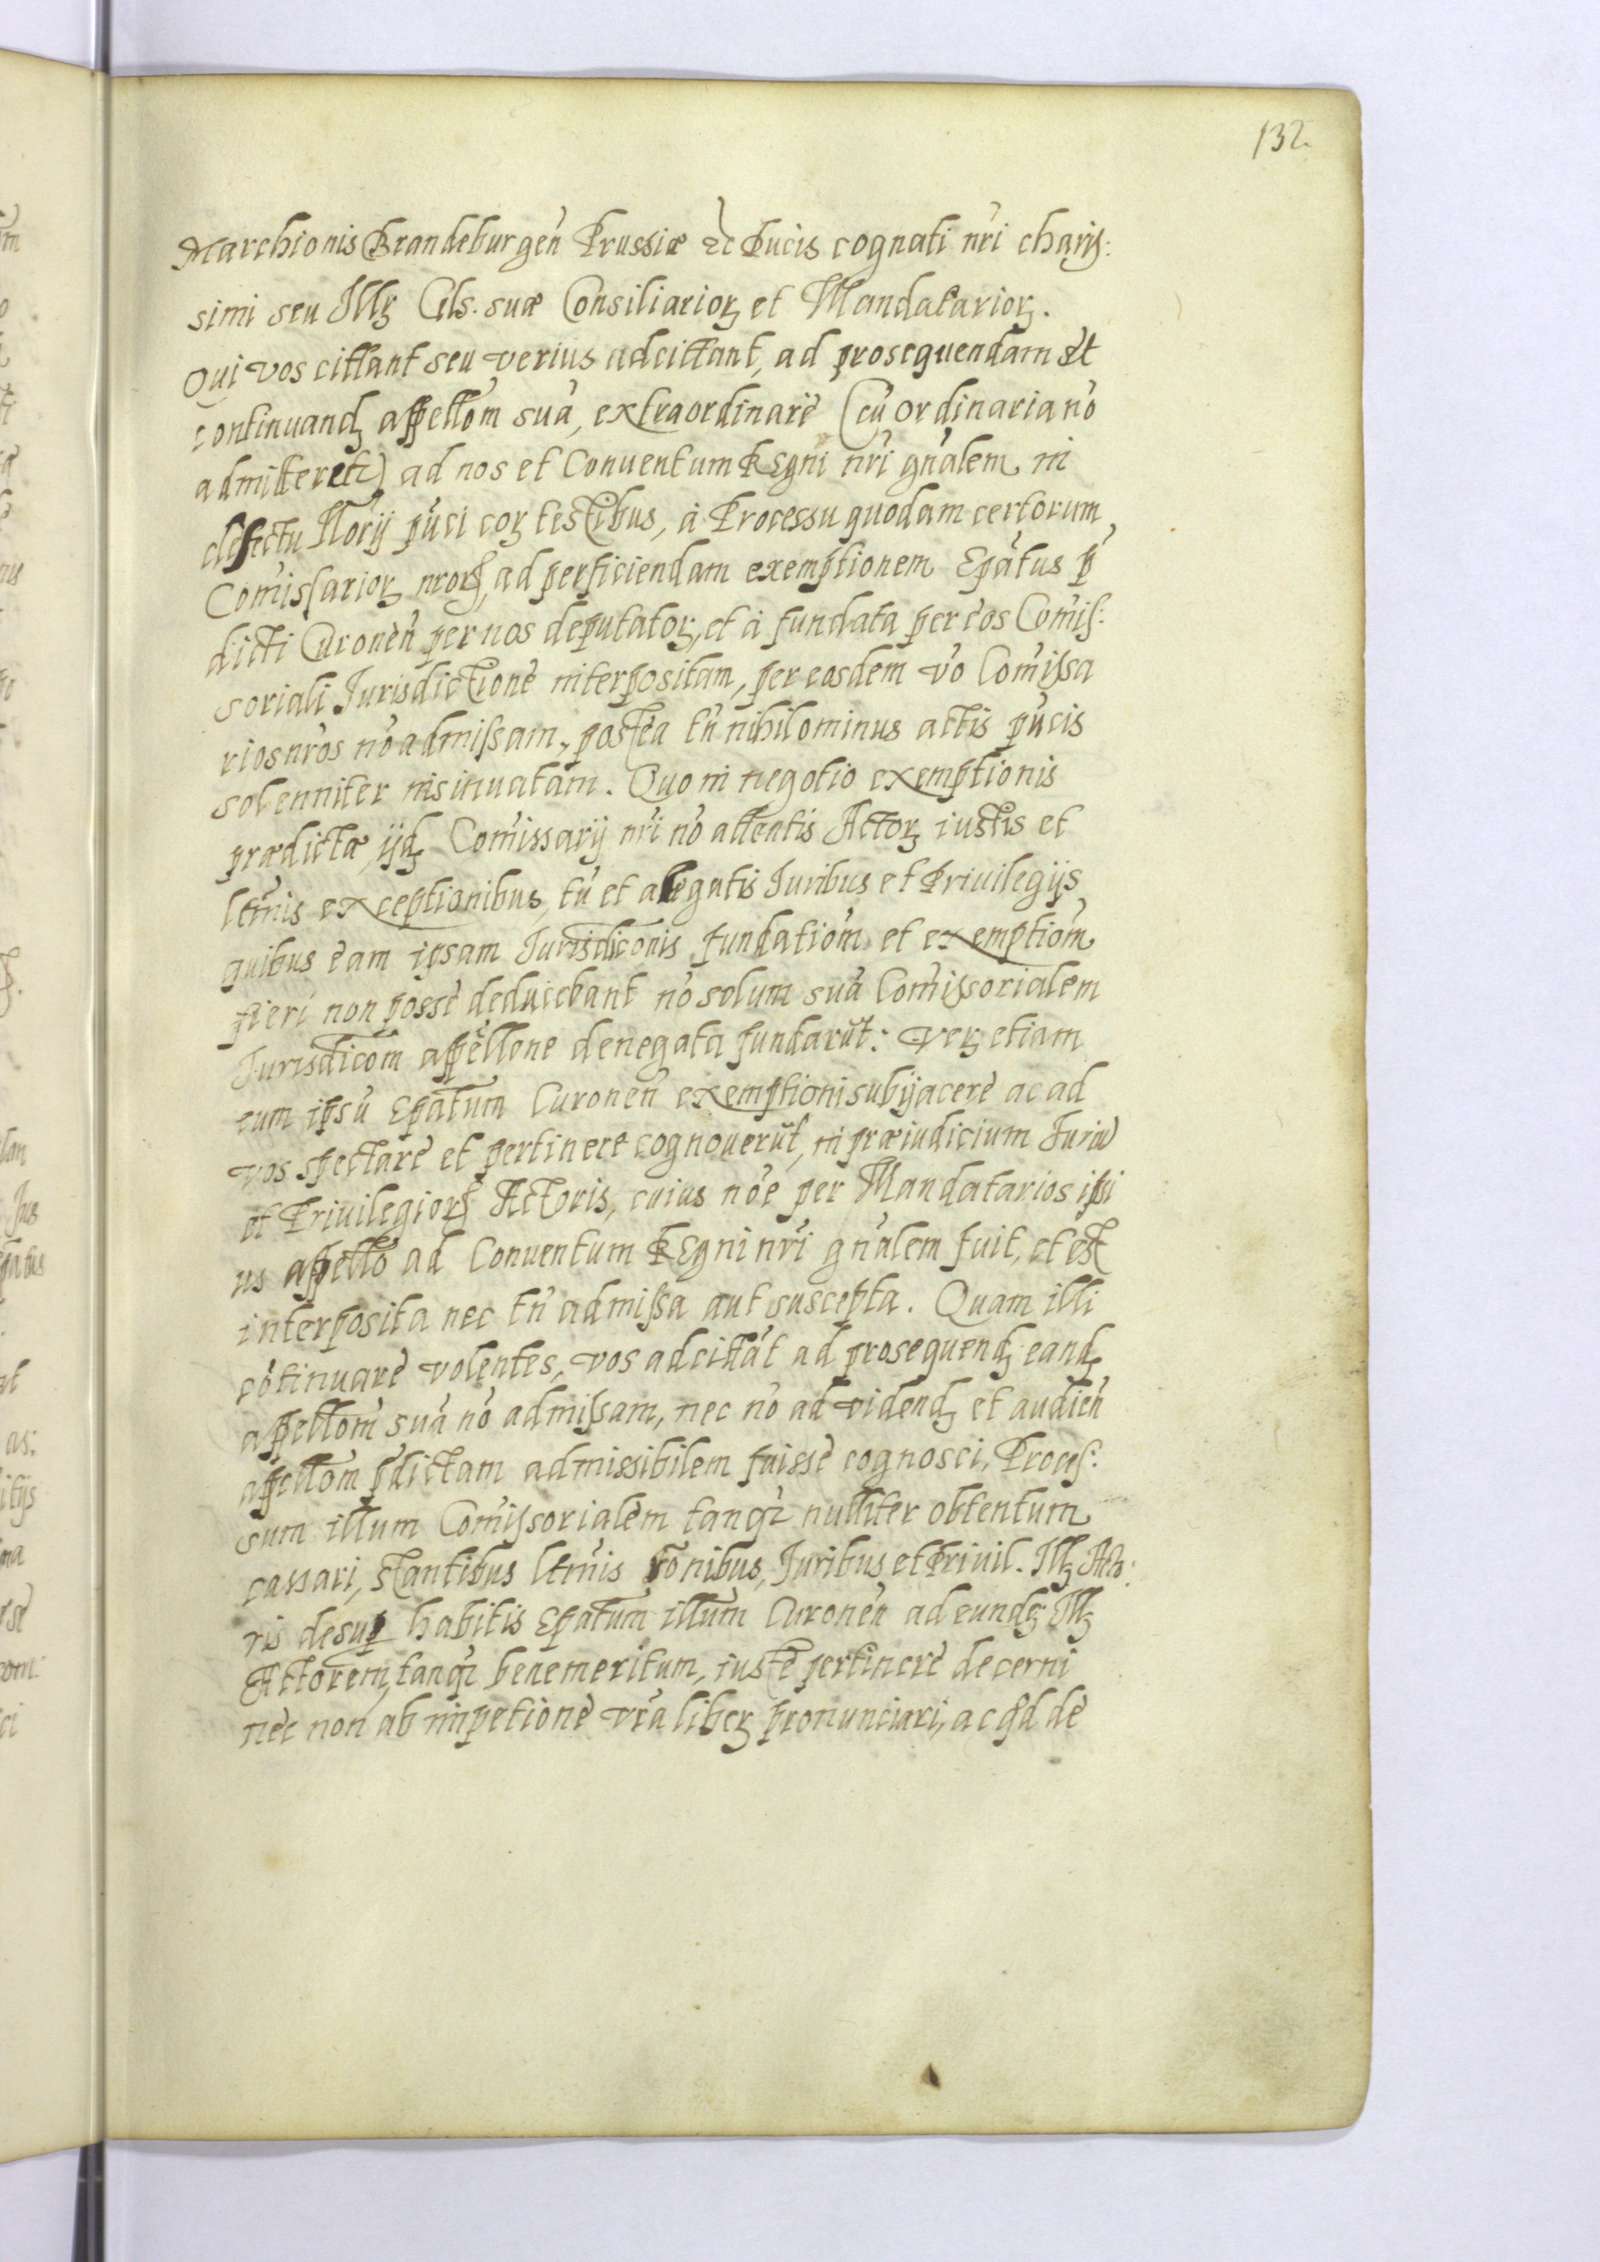 132.
Marchionis Brandeburgen̄ Prussiæ &c Ducis cognati nr̄i charis:
simi seu Illꝫ Cels. suæ Consiliarioꝝ et Mandatarioꝝ.
Qui vos cittant seu verius adcittant, ad prosequendam et
continuandꝫ appellōm suā, extraordinarie (cū ordinaria nō
admitteretr) ad nos et Conventum Regni nr̄i gn̄alem in
defectu Nōrij pūci corꝫ testibus, à Processu quodam certorum
Com̄issarioꝝ nroꝝ, ad perficiendam exemptionem Epātus p̄
dicti Curonen̄ per nos deputatoꝝ, et à fundata per eos Com̄is:
soriali Jurisdictione interpositam, per eosdem vō Com̄issa
rios nr̄os nō admissam, postea tn̄ nihilominus actis pūcis
solenniter insinuatam. Quo in negotio exemptionis
prædictæ, ijdꝫ Com̄issarij nr̄i nō attentis Actoꝝ iustis et
ltm̄is exceptionibus, tū et allegatis Juribus et Privilegijs
quibus eam ipsam Jurisdicōnis fundatiōm et exemptiōm
fieri non posse deducebant nō solum suā Com̄issorialem
Jurisdicōm appellōne denegata fundarūt: verꝫ etiam
eum ipsū Epātum Curonen̄ exemptioni subijacere ac ad
vos spectare et pertinere cognoverūt, in præiudicium Juriū
et Privilegioꝝ Actoris, cuius nōe per Mandatarios ipsi
us appellō ad Conventum Regni nr̄i gn̄alem fuit, et est
interposita nec tn̄ admissa aut suscepta. Quam illi
cōtinuare volentes, vos adcittāt ad prosequendꝫ eandꝫ
appellōm suā nō admissam, nec nō ad videndꝫ et audien̄
appellōm p̄dictam admissibilem fuisse cognosci, Proces:
sum illum Com̄issorialem tanqꝫ nulliter obtentum
cassari, stantibus ltm̄is rōnibus, Juribus et Privil. Illꝫ Acto:
ris desuꝑ habitis Epātum illum Curonen̄ ad eundꝫ Illꝫ
Actorem, tanqꝫ benemeritum, iuste pertinere decerni
nec non ab impetione vr̄a liberꝫ pronunciari, ac qd de